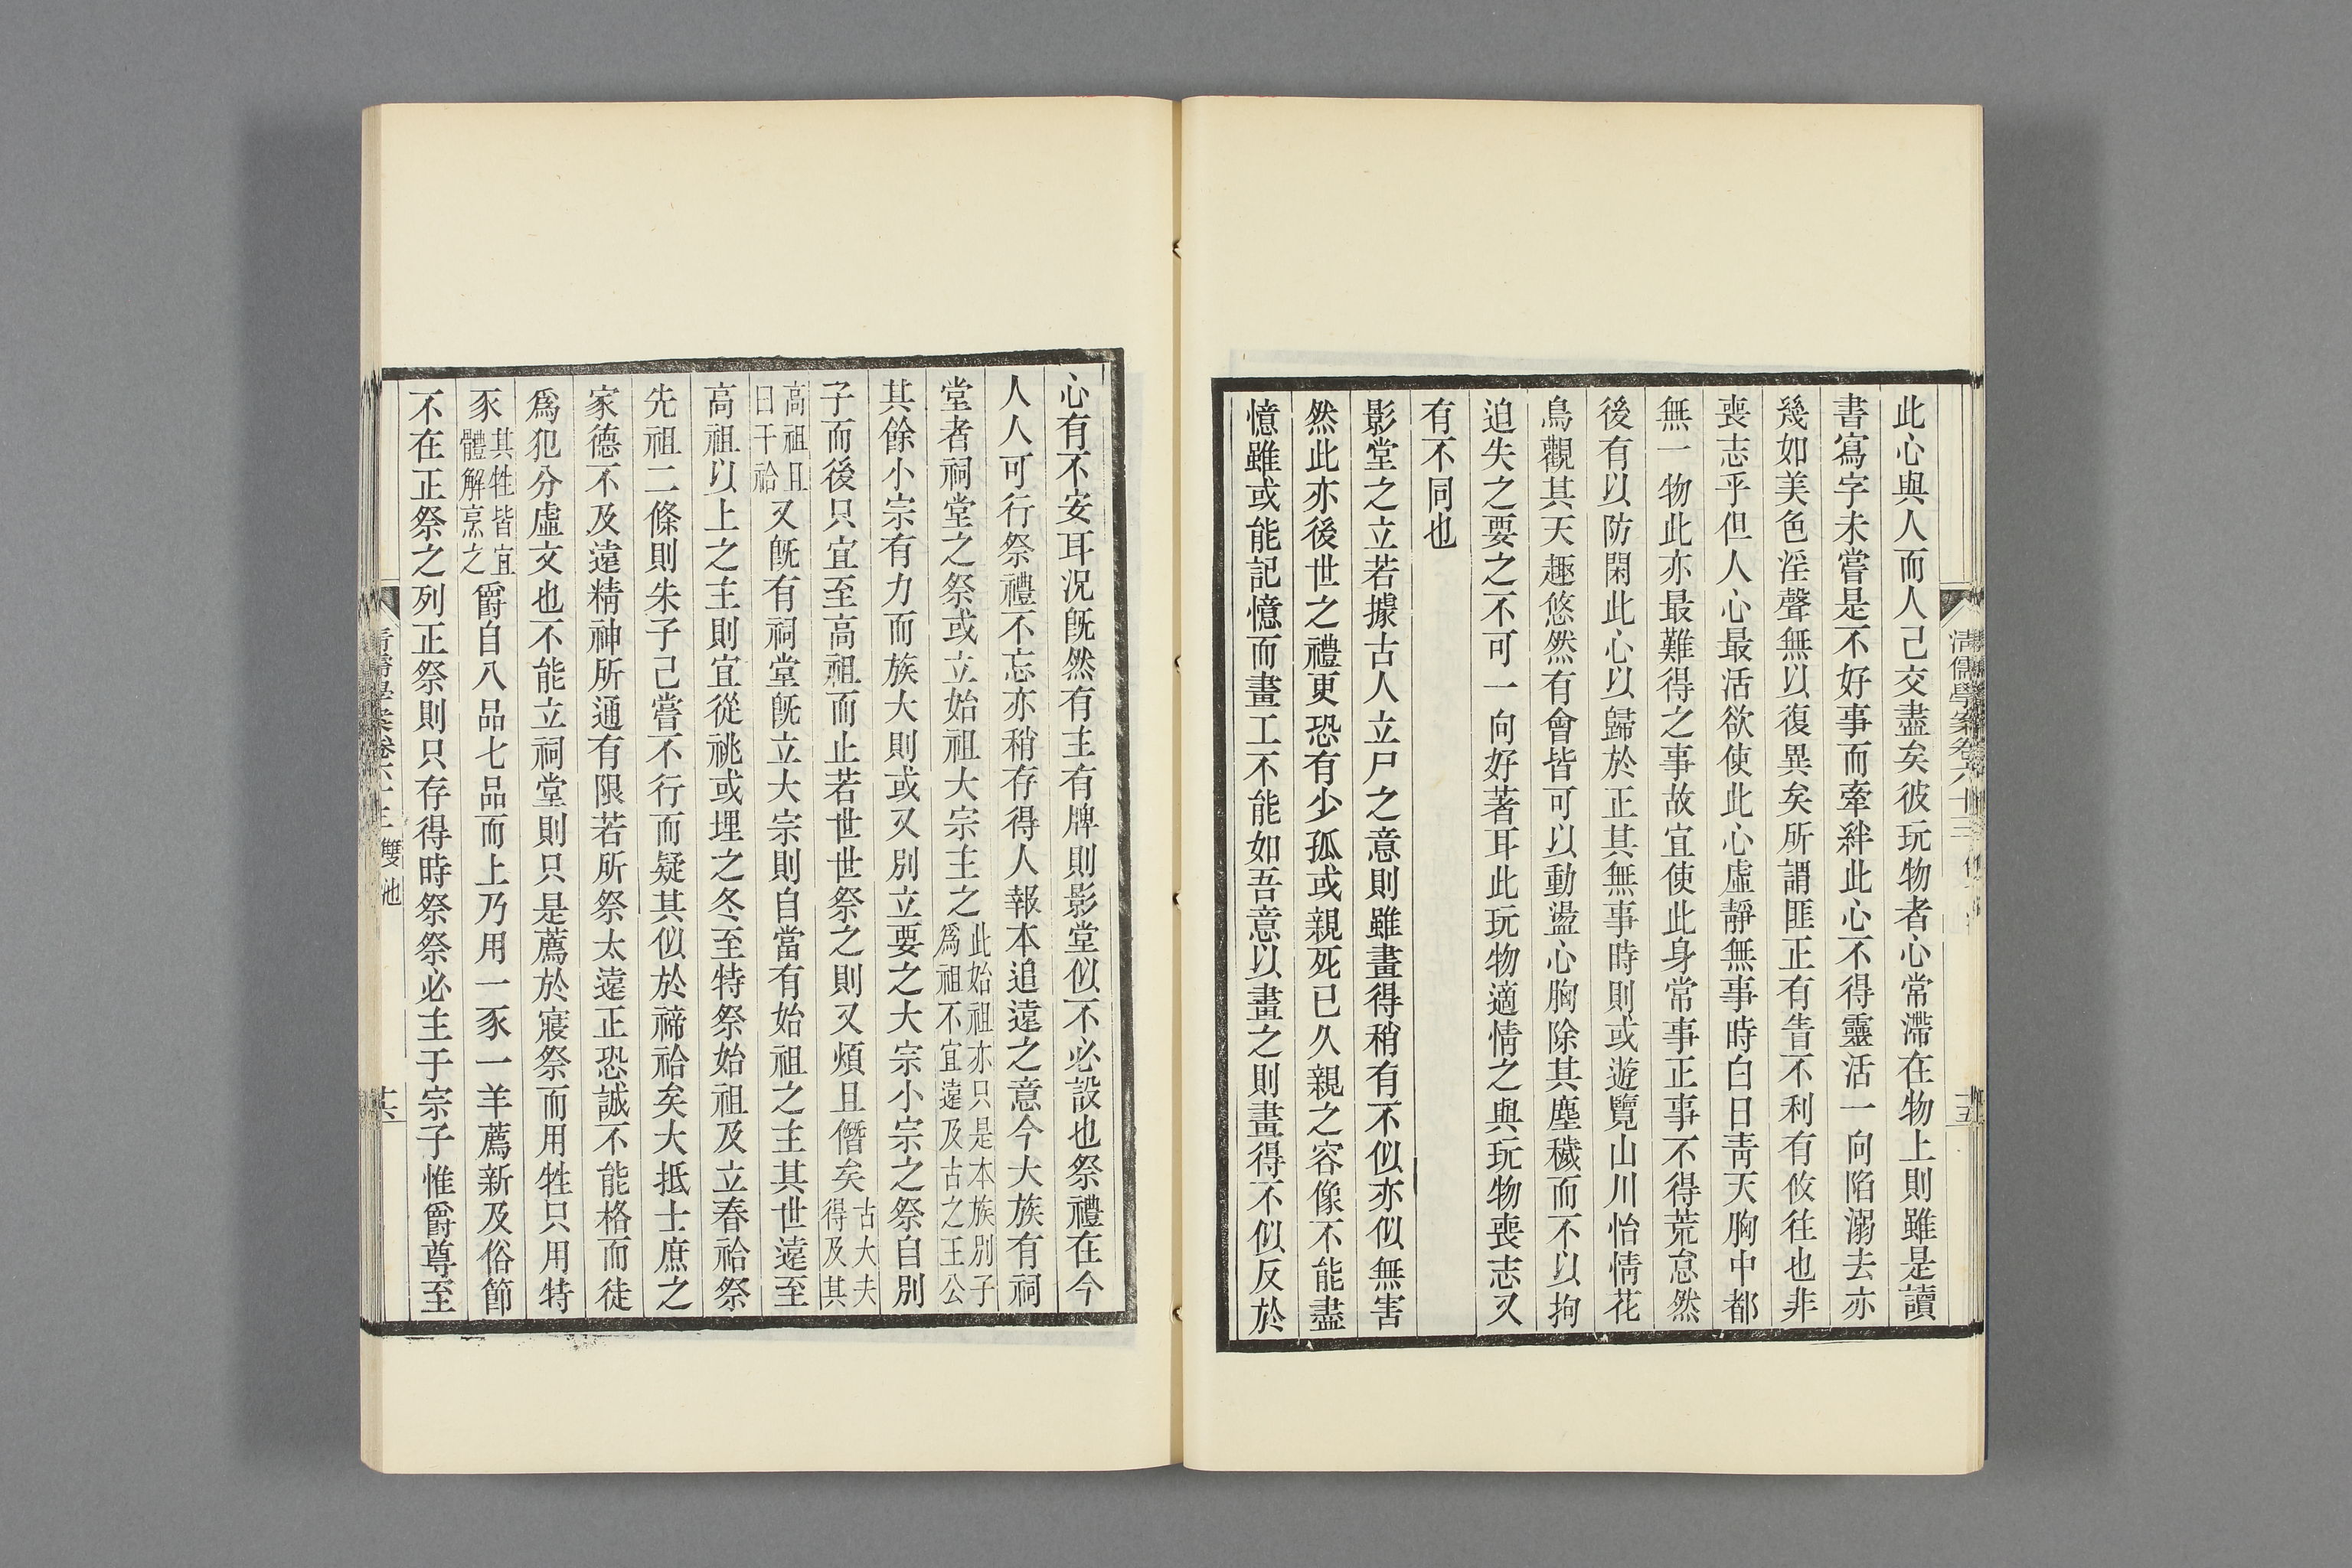 此心與人而人己交盡矣彼玩物者心常滯在物上則雖是讀
書寫字未嘗是不好事而牽絆此心不得靈活一向陷溺去亦
幾如美色淫聲無以復異矣所謂匪正有眚不利有攸往也非
喪志乎但人心最活欲使此心虛靜無事時白日靑天胸中都
無一物此亦最難得之事故宜使此身常事正事不得荒怠然
後有以防閑此心以歸於正其無事時則或遊覽山川怡情花
鳥觀其天趣悠然有會皆可以動盪心胸除其塵穢而不以拘
迫失之要之不可一向好著耳此玩物適情之與玩物喪志又
有不同也
影堂之立若據古人立尸之意則雖畫得稍有不似亦似無害
然此亦後世之禮更恐有少孤或親死已久親之容像不能盡
憶雖或能記憶而畫工不能如吾意以畫之則畫得不似反於
心有不安耳況既然有主有牌則影堂似不必設也祭禮在今
人人可行祭禮不忘亦稍存得人報本追遠之意今大族有祠
堂者祠堂之祭或立始祖大宗主之此始祖亦只是本族別子爲祖不宜遠及古之王公
其餘小宗有力而族大則或又別立要之大宗小宗之祭自別
子而後只宜至高祖而止若世世祭之則又煩且僭矣古大夫得及其
高祖且日干祫又既有祠堂既立大宗則自當有始祖之主其世遠至
高祖以上之主則宜從祧或埋之冬至特祭始祖及立春祫祭
先祖二條則朱子已嘗不行而疑其似於禘祫矣大抵士庶之
家德不及遠精神所通有限若所祭太遠正恐誠不能格而徒
爲犯分虛文也不能立祠堂則只是薦於寢祭而用牲只用特
豕其牲皆宜體解烹之爵自八品七品而上乃用一豕一羊薦新及俗節
不在正祭之列正祭則只存得時祭祭必主于宗子惟爵尊至
淸儒學案卷六十三 雙池